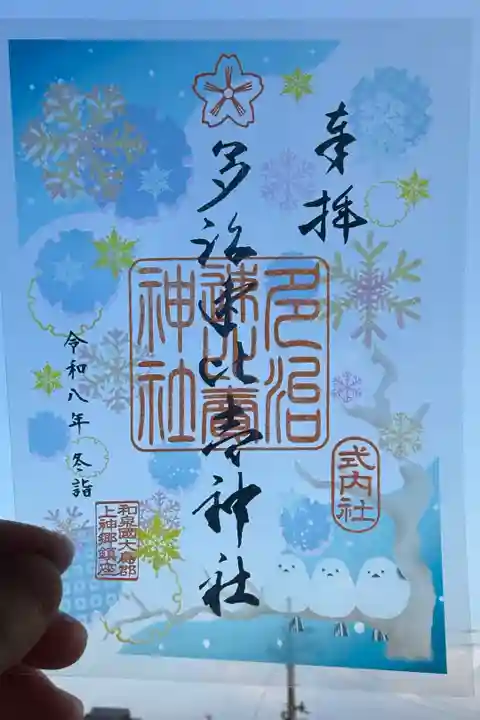 奉拝
多治速比売神社
多治
速比売
神社
式内社
令和八年 冬詣
和泉國大鳥郡
上神郷鎮座